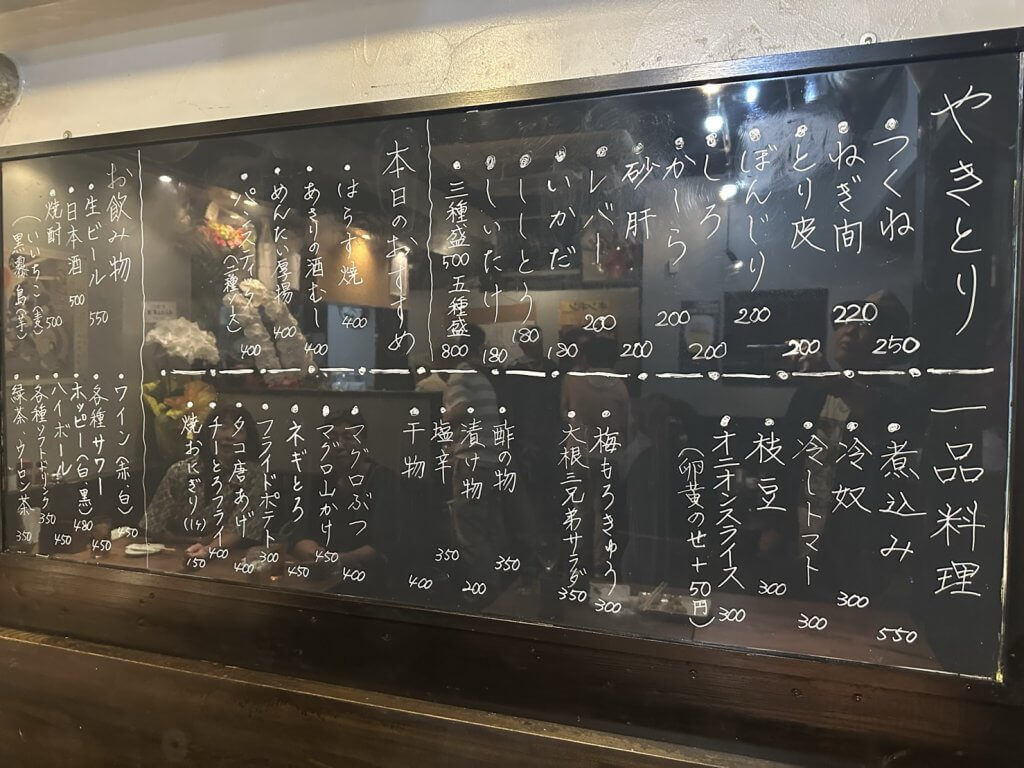 やきとり
・つくね 250
・ねぎ間 220
・とり皮 200
・ぼんじり 200
・しろ 200
・かしら 200
・砂肝 200
・レバー 200
・いかだ 180
・ししとう 180
・しいたけ 180
・三種盛 500 五種盛 800
本日のおすすめ
・はらす焼 400
・あさりの酒むし 400
・めんたい厚揚 400
(二種ソース) 400
一品料理
・煮込み 550
・冷奴 300
・冷しトマト 300
・枝豆 300
・オニオンスライス 300
(卵黄のせ+50円)
・梅もろきゅう 300
・大根三兄弟サラダ 350
・酢の物 350
・漬け物 200
・塩辛 350
・干物 400
・マグロぶつ 400
・マグロ山かけ 450
・ネギとろ 450
・フライドポテト 300
・タコ唐あげ 400
・チーとろフライ 400
・焼おにぎり(1ケ) 150
お飲み物
・生ビール 550
・日本酒 500
・焼酎 500
(いいちこ(麦)
黒霧島(芋))
・ワイン(赤・白)
・各種サワー 450
・ホッピー(白・黒) 480
・ハイボール 450
・各種ソフトドリンク 350
・緑茶・ウーロン茶 350